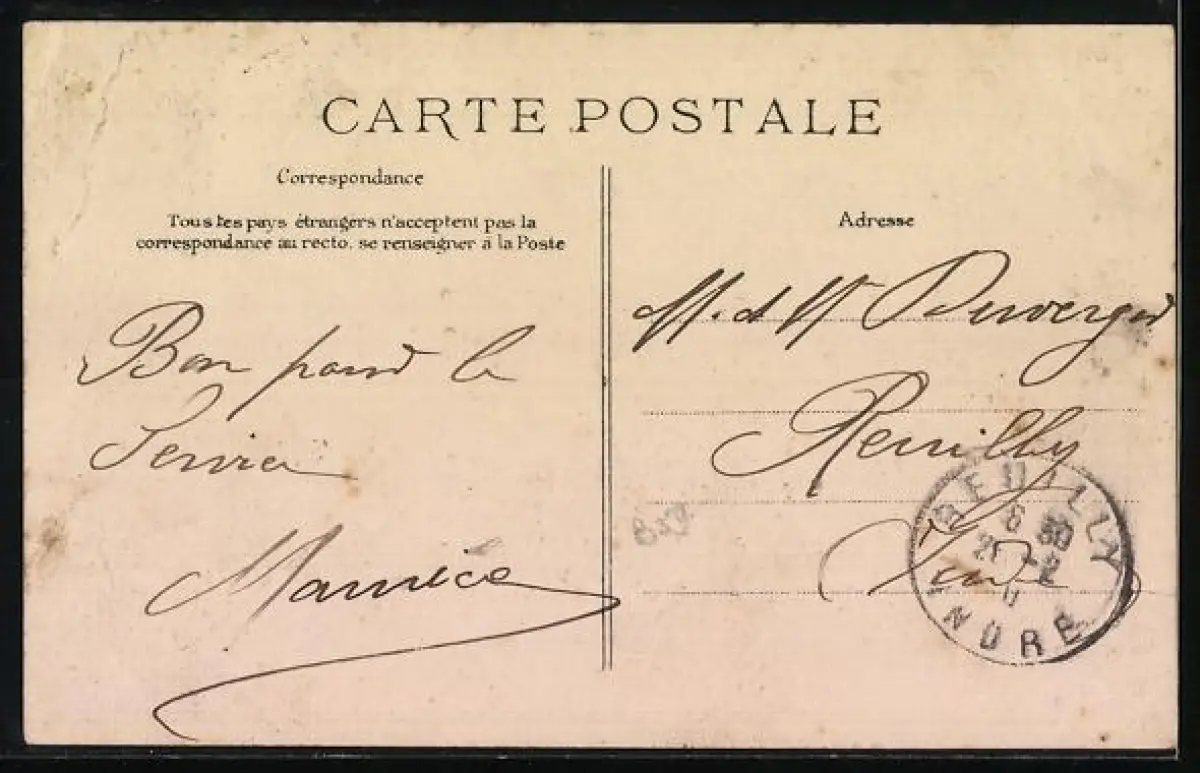 CARTE POSTALE
Correspondance
Tous les pays étrangers n'acceptent pas la
correspondance au recto, se renseigner à la Poste
Adresse
Bon pour le
Service
Maurice
M. et Mme
Reuilly
Indre
REUILLY
6 30
2
INDRE